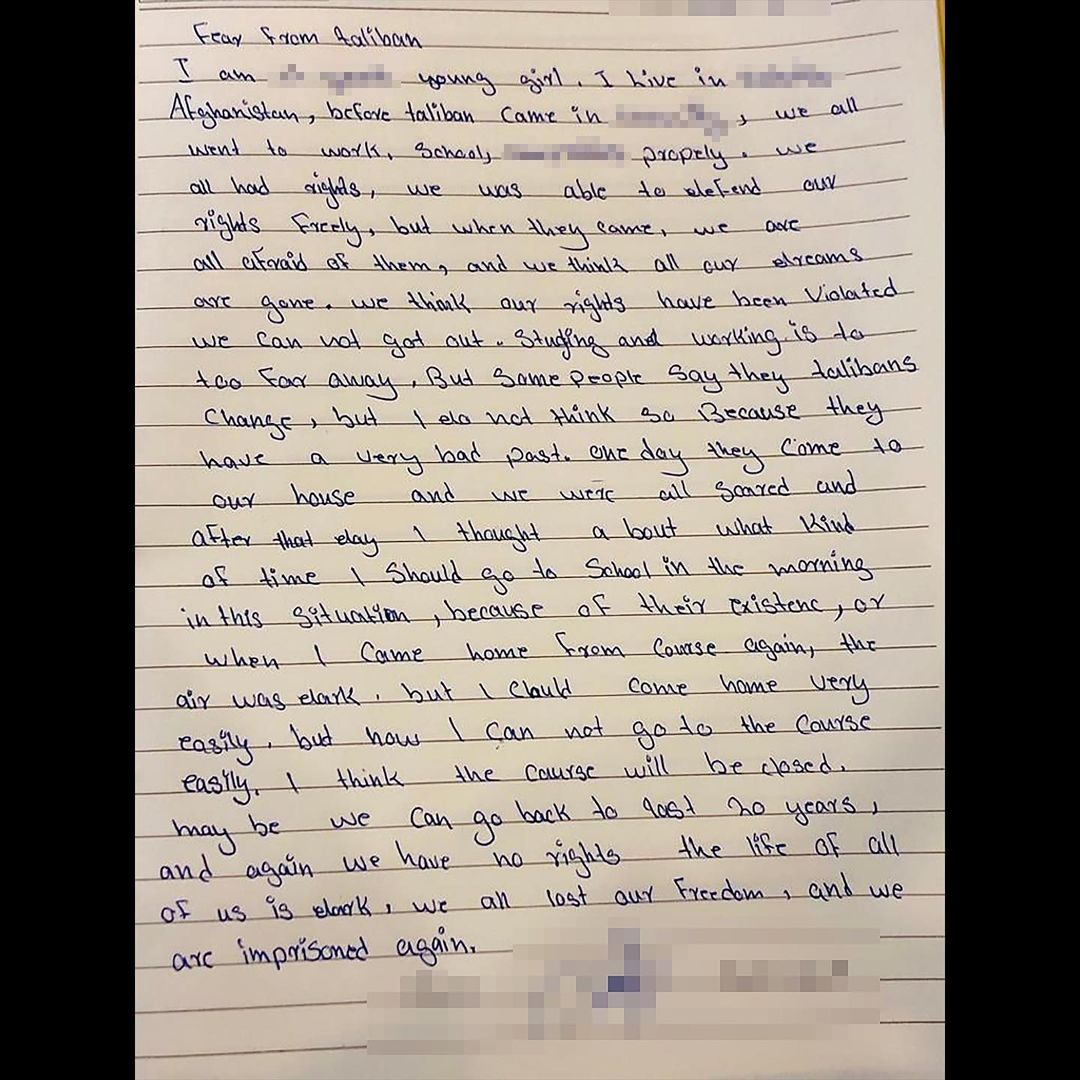 Fear from taliban
I am young girl. I Live in
Afghanistan, before taliban Came in , we all
went to work, School, propely. we
all had rights, we was able to defend our
rights Freely, but when they came, we are
all afraid of them, and we think all our dreams
are gone. we think our rights have been Violated
we can not got out. Studing and working is to
too Far away. But Some people Say they talibans
Change, but I do not think so Because they
have a very bad past. one day they Come to
our house and we were all Scared and
after that day I thought a bout what Kind
of time I Should go to School in the morning
in this Situation, because of their existenc, or
when I Came home from Course again, the
air was dark. but I Could come home very
easily. but now I Can not go to the Course
easily. I think the Course will be closed.
may be we Can go back to last 20 years,
and again we have no rights the life of all
of us is dark, we all lost our Freedom, and we
are imprisoned again.